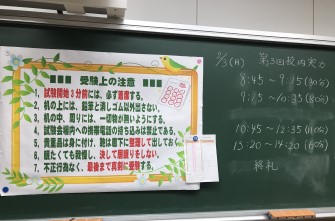 ■■■ 受験上の注意 ■■■
1. 試験開始3分前には、必ず着席する。
2. 机の上には、鉛筆と消しゴム以外出さない。
3. 机の中、周りには、一切物が無いようにする。
4. 試験会場内への携帯電話の持ち込みは禁止である。
5. 貴重品は身に付け、鞄は廊下に整理して出しておく
6. 眠たくても我慢し、決して居眠りをしない。
7. 不正行為なく、最後まで真剣に受験する。
(月) 第3回校内実力
8:45 ~ 9:15 (30分)
10:45 ~ 12:35
13:20 ~ 14:20 (60分)
終礼